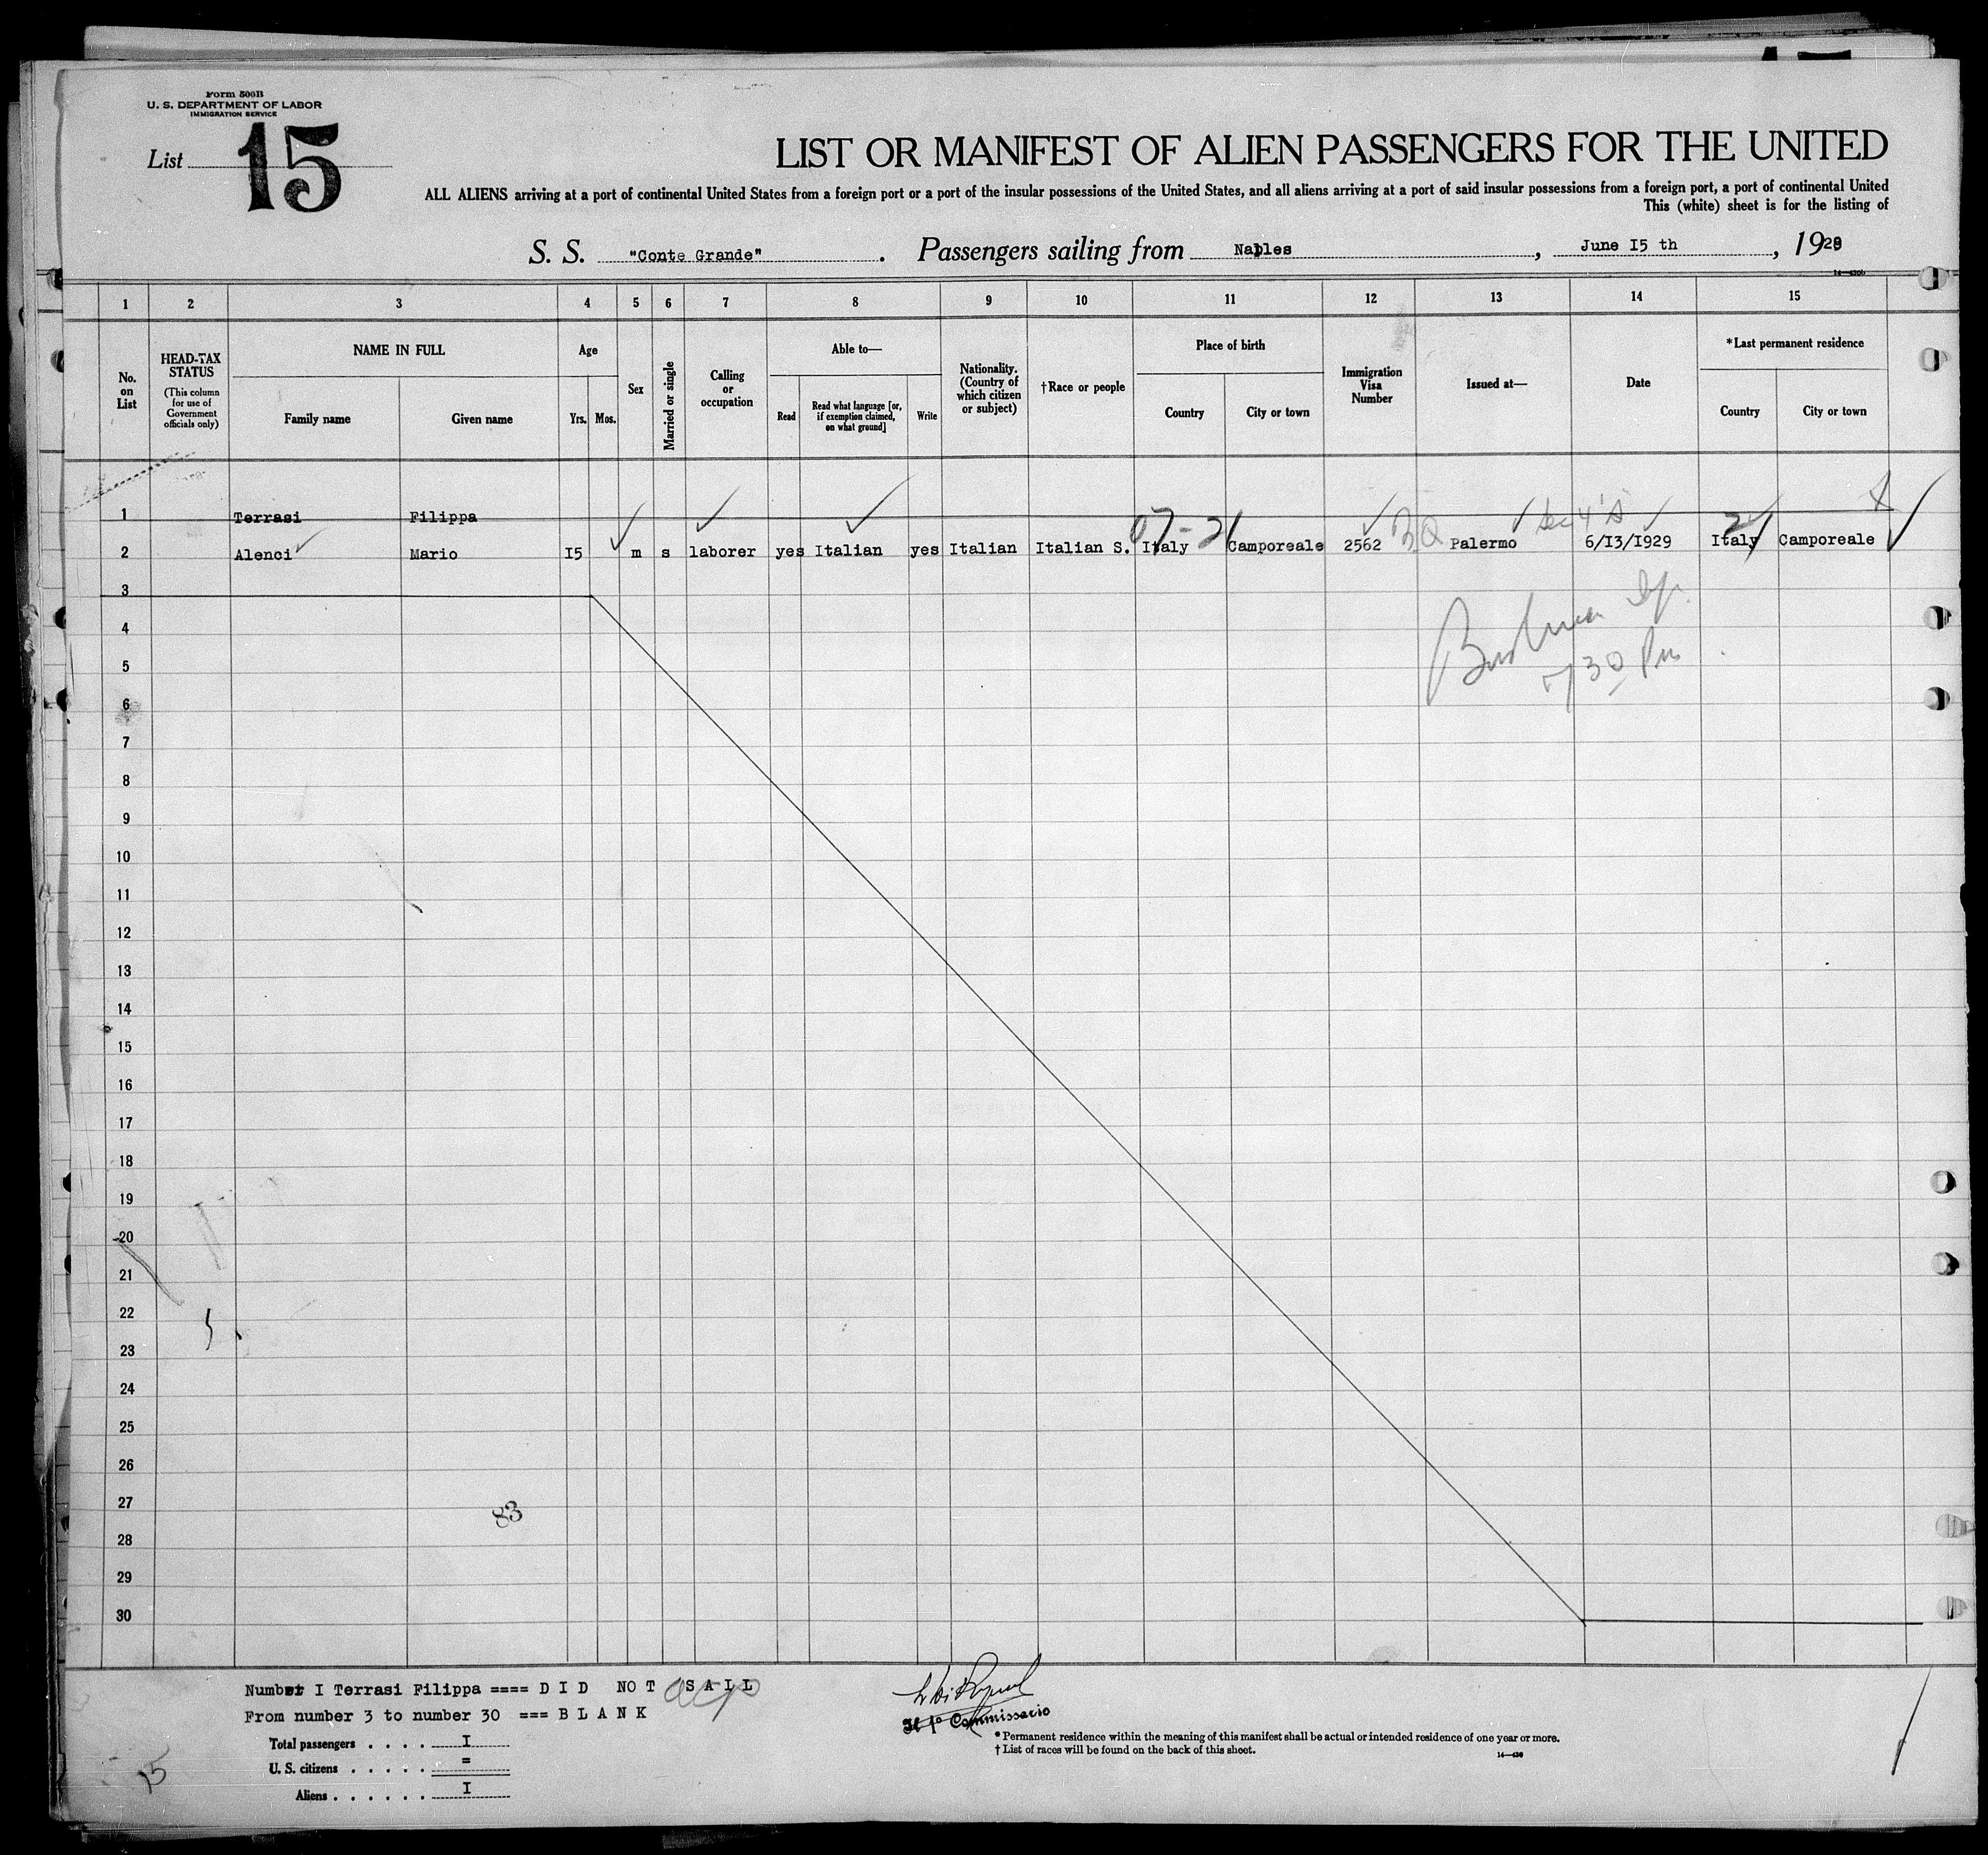 Form 500B
U. S. DEPARTMENT OF LABOR
IMMIGRATION SERVICE
List 15
LIST OR MANIFEST OF ALIEN PASSENGERS FOR THE UNITED
ALL ALIENS arriving at a port of continental United States from a foreign port or a port of the insular possessions of the United States, and all aliens arriving at a port of said insular possessions from a foreign port, a port of continental United
This (white) sheet is for the listing of
S. S. "Conte Grande". Passengers sailing from Naples, June I5 th, 1929
1 2 3 4 5 6 7 8 9 10 11 12 13 14 15
No. on List
HEAD-TAX STATUS
(This column for use of Government officials only)
NAME IN FULL
Family name
Given name
Age
Yrs. Mos.
Sex
Married or single
Calling or occupation
Able to—
Read
Read what language [or, if exemption claimed, on what ground]
Write
Nationality. (Country of which citizen or subject)
†Race or people
Place of birth
Country
City or town
Immigration Visa Number
Issued at—
Date
*Last permanent residence
Country
City or town
1 Terrasi Filippa
2 Alenci Mario I5 m s laborer yes Italian yes Italian Italian S. Italy Camporeale 2562 Palermo 6/13/1929 Italy Camporeale
3
4
5
730 Pm
6
7
8
9
10
11
12
13
14
15
16
17
18
19
20
21
22
23
24
25
26
27
83
28
29
30
Number I Terrasi Filippa ==== D I D N O T S A I L
From number 3 to number 30 === B L A N K
Total passengers . . . . I
U. S. citizens . . . . . =
Aliens . . . . . . I
Il 1º Commissario
* Permanent residence within the meaning of this manifest shall be actual or intended residence of one year or more.
† List of races will be found on the back of this sheet.
14—430
15